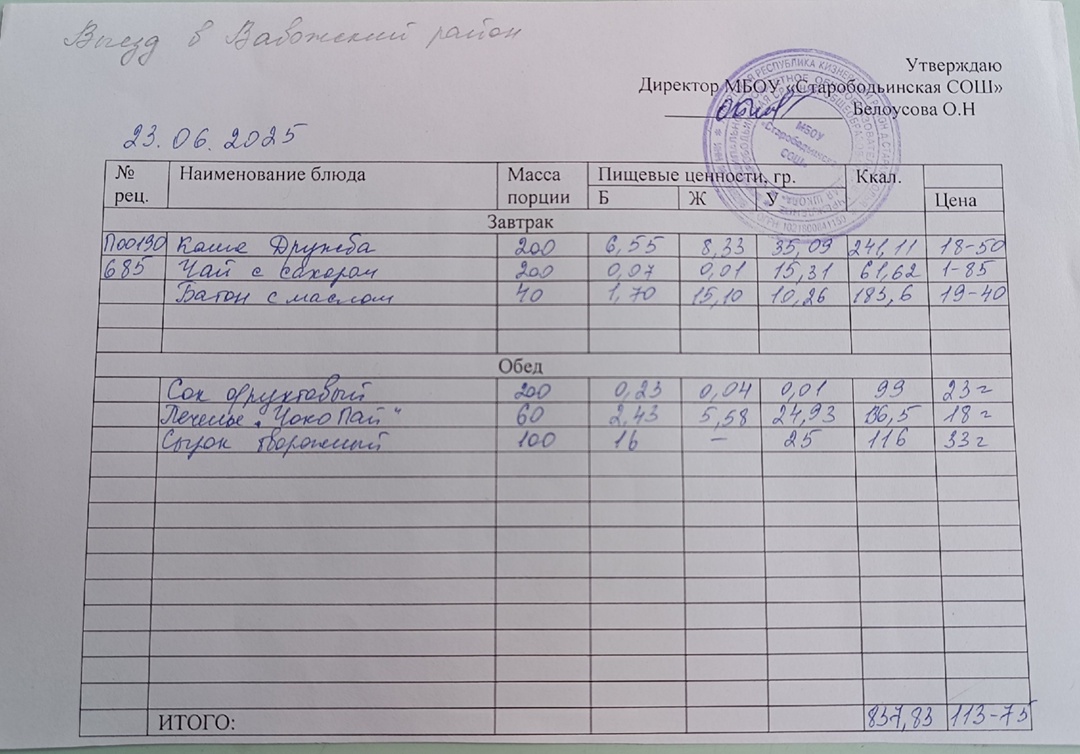 Выезд в Вавожский район
Утверждаю
Директор МБОУ «Старободьинская СОШ»
Белоусова О.Н
23.06.2025
№ рец. Наименование блюда Масса порции Пищевые ценности, гр. Б Ж У Ккал. Цена
Завтрак
П00190 Каша Дружба 200 6,55 8,33 35,09 241,11 18-50
685 Чай с сахаром 200 0,07 0,01 15,31 61,62 1-85
Батон с маслом 40 1,70 15,10 10,26 183,6 19-40
Обед
Сок фруктовый 200 0,23 0,04 0,01 99 23 г
Печенье „Чоко Пай" 60 2,43 5,58 24,93 136,5 18 г
Сырок творожный 100 16 – 25 116 33 г
ИТОГО: 837,83 113-75
МБОУ
«Старободьинская
СОШ»